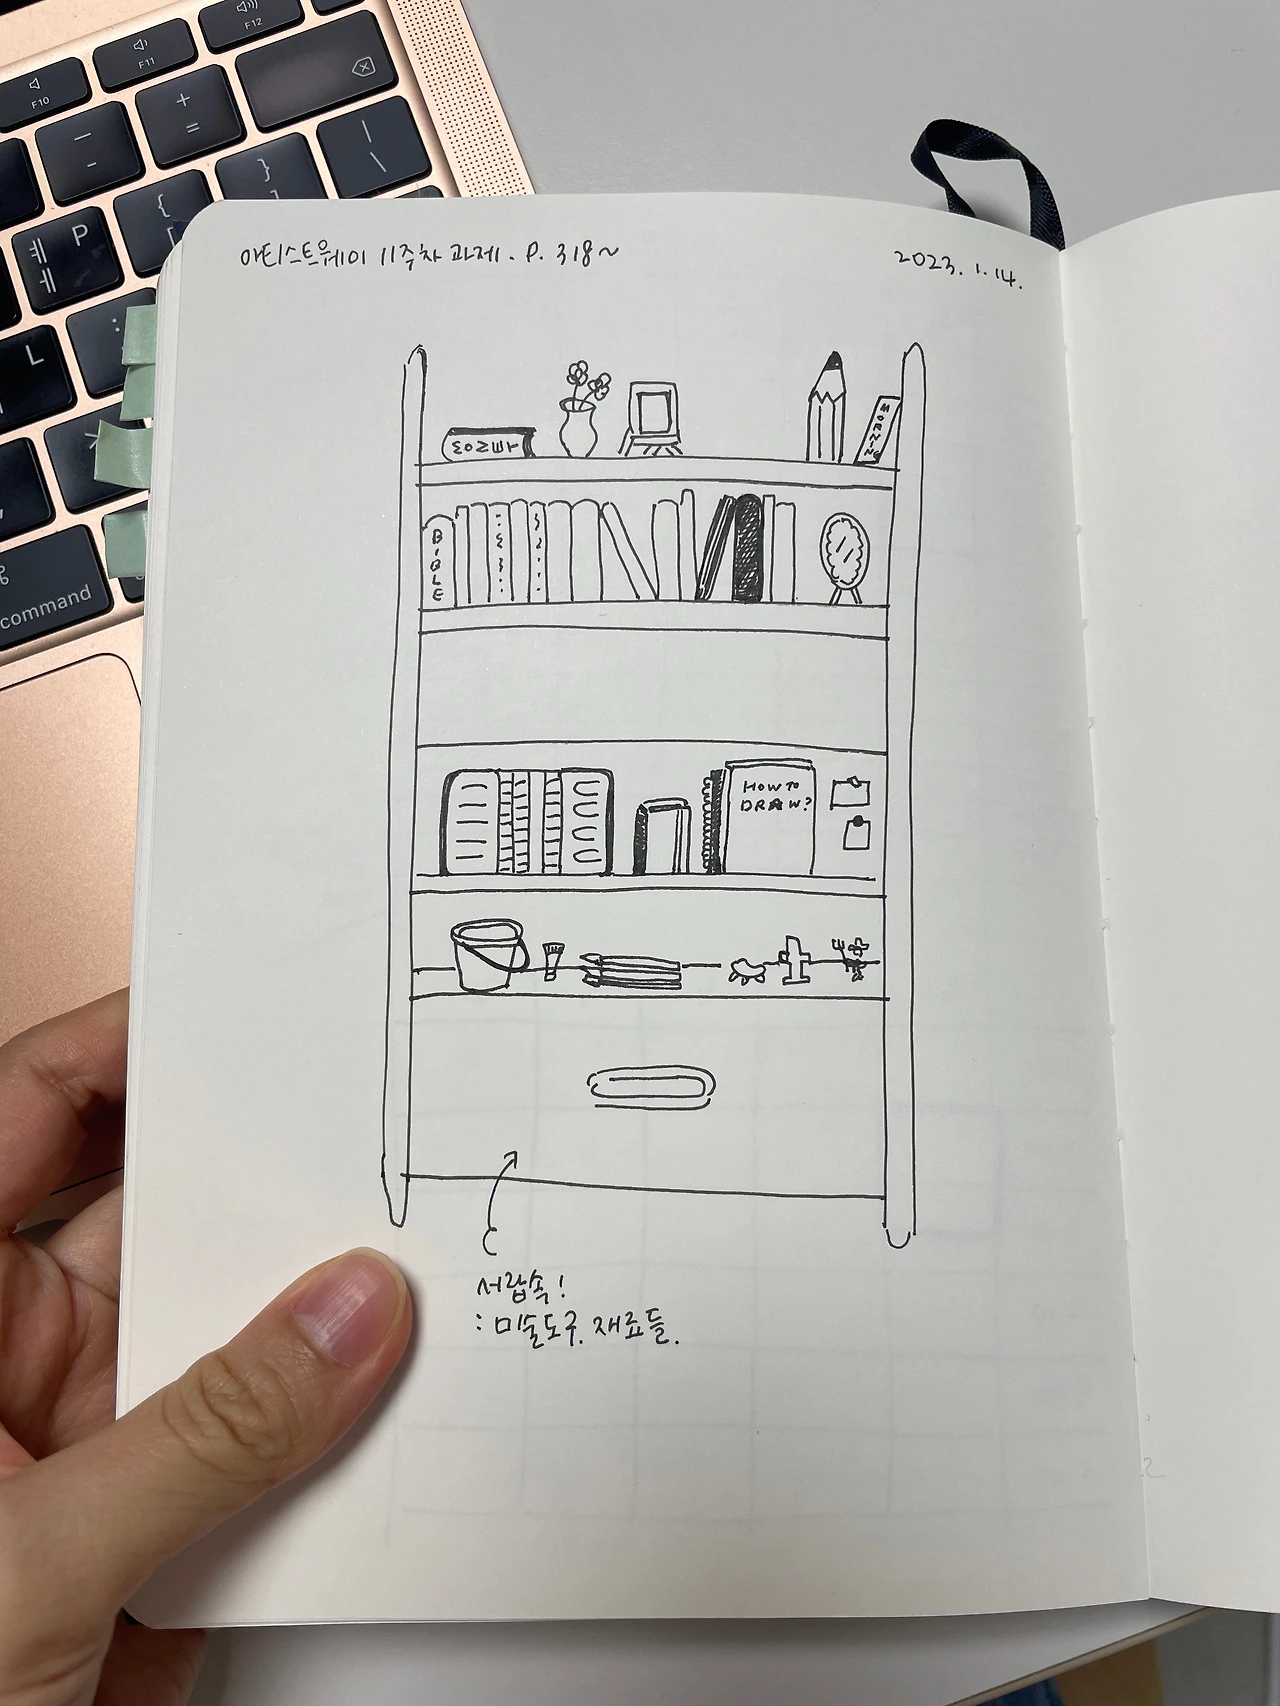 F10
F11
F12
+
=
—
-
|
\
}
]
{
[
ㅖ P
ㅔ
L
:
command
아티스트웨이 11주차 과제. P. 318~
2023. 1. 14.
MORNING
BIBLE
HOW TO
DRAW?
서랍속!
: 미술도구. 재료들.